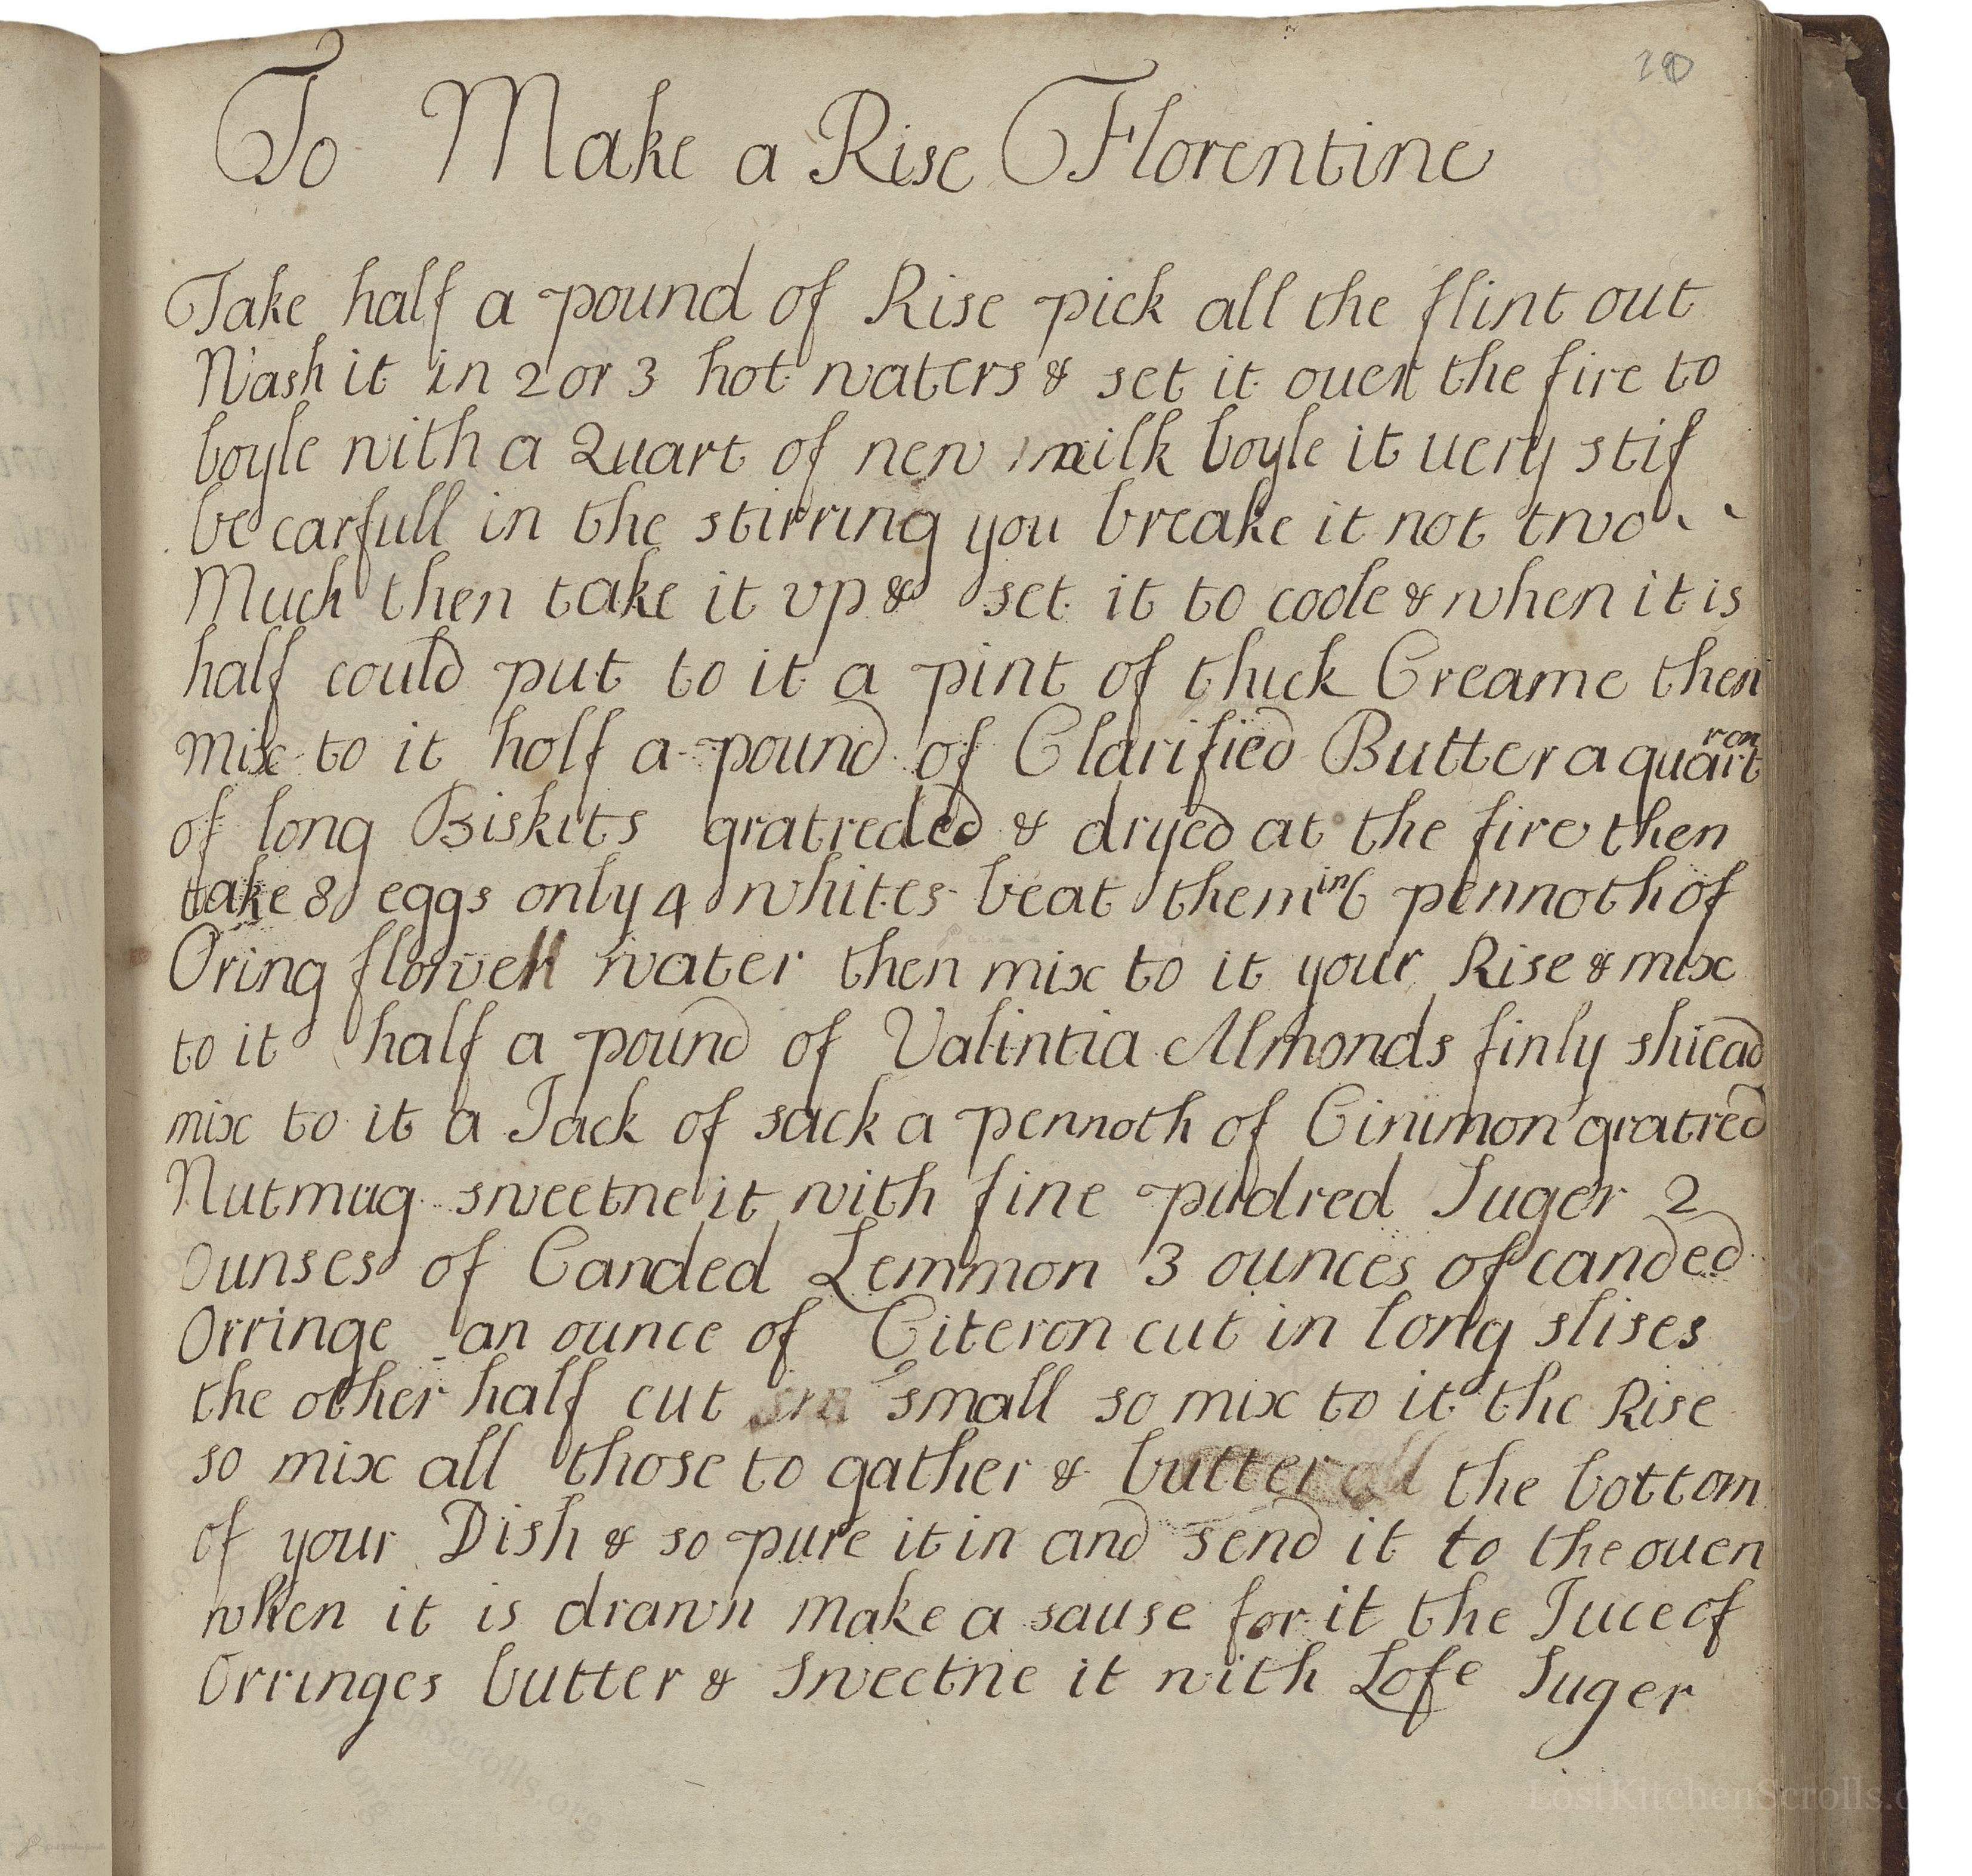 10
To Make a Rise Florentine
Take half a pound of Rise pick all the flint out
Wash it in 2 or 3 hot waters & set it ouer the fire to
boyle with a Quart of new milk boyle it uery stif
be carfull in the stirring you breake it not two
Much then take it vp & set it to coole & when it is
half could put to it a pint of thick Creame then
mix to it holf a pound of Clarified Butter a quart
ron
of long Biskits gratreded & dryed at the fire then
take 8 eggs only 4 whites beat them in 6 pennoth of
Oring flower water then mix to it your Rise & mix
to it half a pound of Valintia Almonds finly shicad
mix to it a Jack of sack a pennoth of Cinimon gratred
Nutmug sweetne it with fine pudred Suger 2
ounses of Canded Lemmon 3 ounces of canded
Orringe an ounce of Citeron cut in long slises
the other half cut small so mix to it the Rise
so mix all those to gather & butter all the bottom
of your Dish & so pure it in and send it to the ouen
when it is drawn make a sause for it the Juce of
Orringes butter & Sweetne it with Lofe Suger
LostKitchenScrolls.o